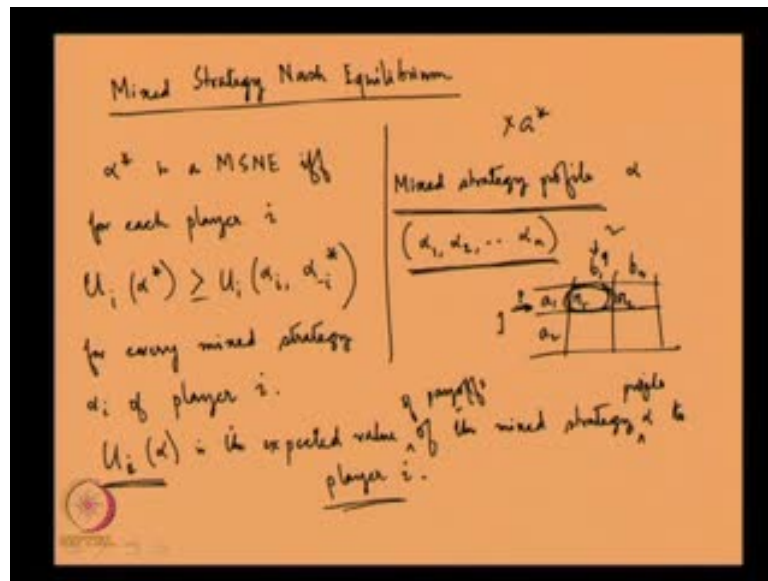 Mixed Strategy Nash Equilibrium
α* is a MSNE iff
for each player i
U_i (α*) ≥ U_i (α_i, α_-i*)
for every mixed strategy
α_i of player i.
U_i (α) is the expected value of payoffs of the mixed strategy profile α to
player i.
× a*
Mixed strategy profile α
(α_1, α_2, .. α_n)
2
q
b_1 b_2
1 p a_1
a_2